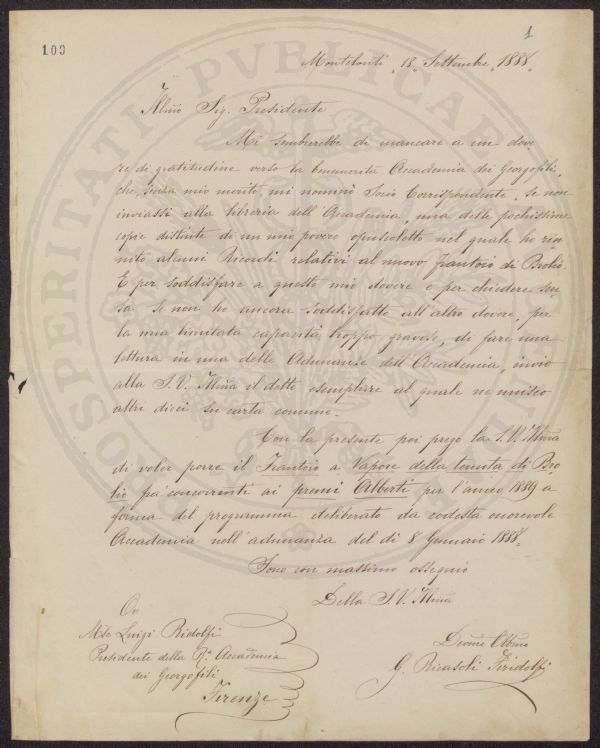 1
109
Montefonti, 18, Settembre, 1888,
Illmo Sig. Presidente
Mi sembrerebbe di mancare a un dove
re di gratitudine verso la benemerita Accademia dei Georgofili,
che, senza mio merito mi nominò Socio Corrispondente, se non
inviassi alla libreria dell'Accademia, una delle pochissime
copie distinte di un mio povero opuscoletto nel quale ho riu
nito alcuni Ricordi relativi al nuovo frantoio di Brolio.
E per soddisfare a questo mio dovere e per chiedere scu
sa se non ho ancora soddisfatto all'altro dovere, per
la mia limitata capacità troppo gravoso, di fare una
lettura in una delle Adunanze dell'Accademia, invio
alla S.V. Illma il detto esemplare al quale ne unisco
altri dieci su carta comune.
Con la presente poi prego la S.V. Illma
di voler porre il Frantoio a Vapore della tenuta di Bro
lio fra concorrenti ai premi Alberti per l'anno 1889 a
forma del programma deliberato da codesta onorevole
Accademia nell'adunanza del dì 8 Gennaio 1888.
Sono con massimo ossequio
Della S.V. Illma
On
Mse Luigi Ridolfi
Presidente della Ra Accademia
dei Georgofili
Firenze
Devmo Obbmo
G. Ricasoli Firidolfi
PROSPERITATI PUBLICAE